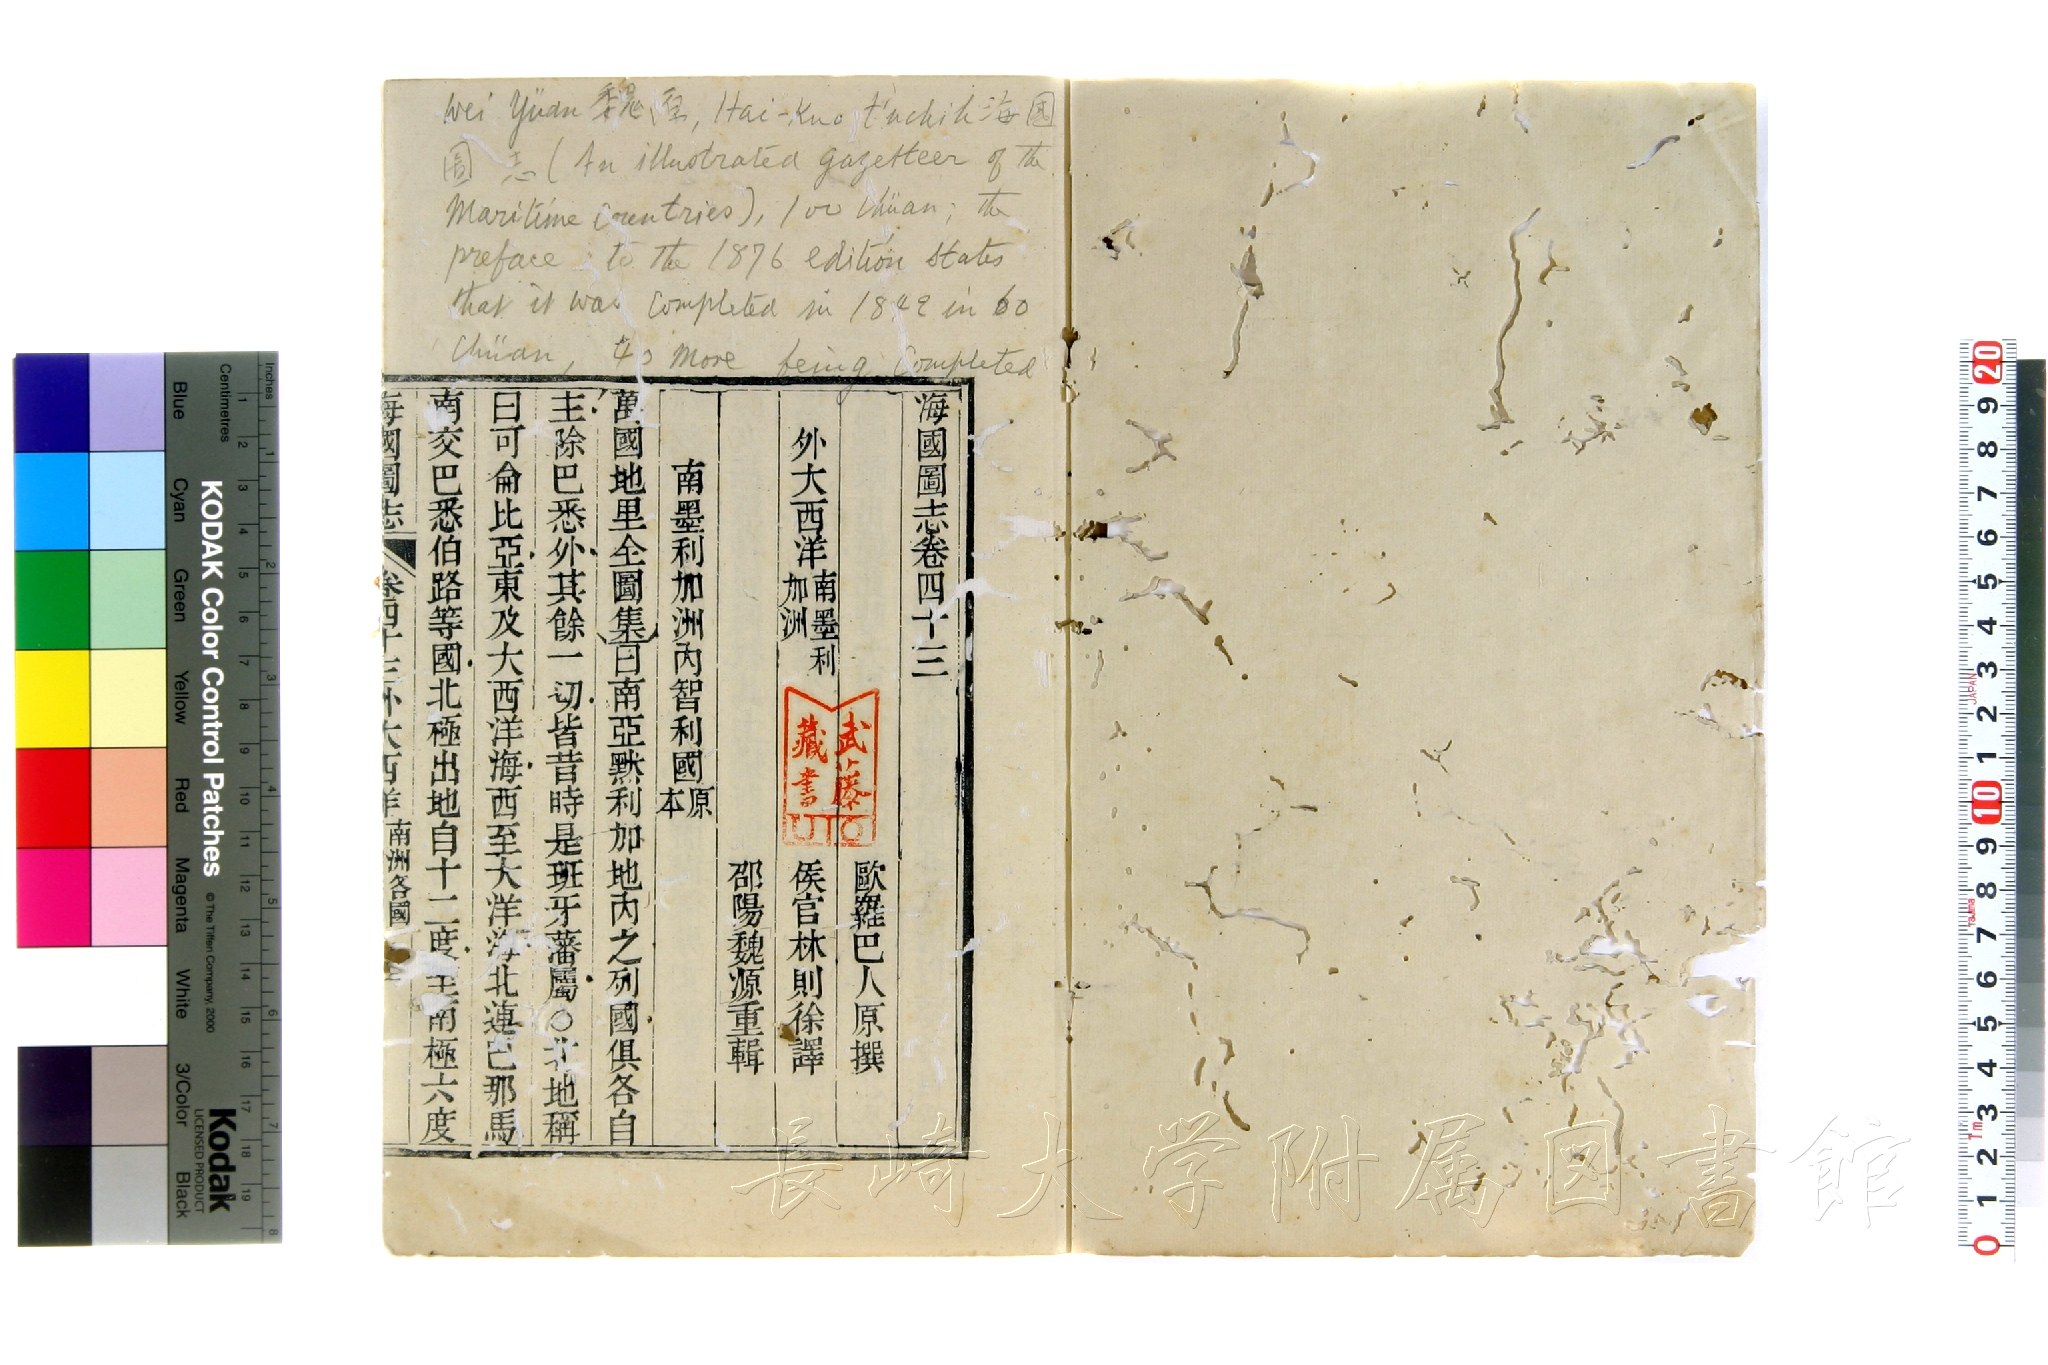 Wei Yüan 魏源, Hai-Kuo t'uchih 海國
圖志 (An illustrated gazetteer of the
Maritime Countries), 100 chüan; the
preface to the 1876 edition states
that it was completed in 1842 in 60
chüan, 40 more being completed
海國圖志卷四十三
歐羅巴人原撰
外大西洋 南墨利加洲
侯官林則徐譯
邵陽魏源重輯
南墨利加洲內智利國 原本
萬國地里全圖集曰南亞默利加地內之列國俱各自
主除巴悉外其餘一切皆昔時是班牙藩屬○北地稱
曰可侖比亞東及大西洋海西至大洋海北連巴那馬
南交巴悉伯路等國北極出地自十二度至南極六度
海國圖志 卷四十三外大西洋 南洲各國
武藤
藏書
UTO
長崎大学附属図書館
KODAK Color Control Patches
© The Tiffen Company, 2000
Kodak
LICENSED PRODUCT
Inches
Centimetres
1 2 3 4 5 6 7 8
1 2 3 4 5 6 7 8 9 10 11 12 13 14 15 16 17 18 19
Blue
Cyan
Green
Yellow
Red
Magenta
White
3/Color
Black
20 9 8 7 6 5 4 3 2 1 10 9 8 7 6 5 4 3 2 1 0
JAPAN